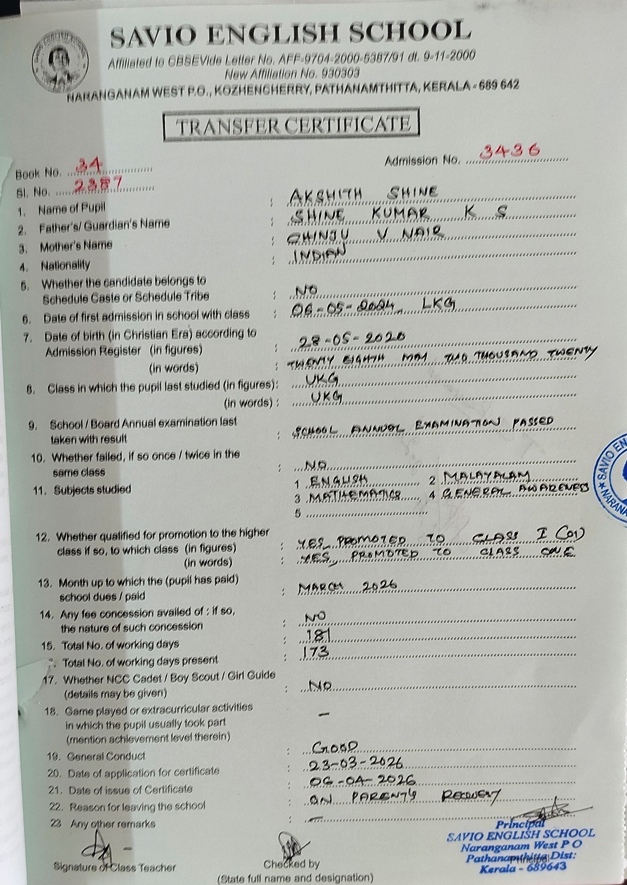 SAVIO ENGLISH SCHOOL
Affiliated to CBSEVide Letter No. AFF-9704-2000-5387/91 dt. 9-11-2000
New Affiliation No. 930303
NARANGANAM WEST P.O., KOZHENCHERRY, PATHANAMTHITTA, KERALA - 689 642
TRANSFER CERTIFICATE
Book No. 34
Admission No. 3436
Sl. No. 2387
1. Name of Pupil : AKSHITH SHINE
2. Father's/ Guardian's Name : SHINE KUMAR K S
3. Mother's Name : SHINJU V NAIR
4. Nationality : INDIAN
5. Whether the candidate belongs to
Schedule Caste or Schedule Tribe : NO
6. Date of first admission in school with class : 06-05-2024, LKG
7. Date of birth (in Christian Era) according to
Admission Register (in figures) : 28-05-2020
(in words) : TWENTY EIGHTH MAY TWO THOUSAND TWENTY
8. Class in which the pupil last studied (in figures): UKG
(in words) : UKG
9. School / Board Annual examination last
taken with result : SCHOOL ANNUAL EXAMINATION PASSED
10. Whether failed, if so once / twice in the
same class : NO
11. Subjects studied 1 ENGLISH 2 MALAYALAM
3 MATHEMATICS 4 GENERAL AWARENESS
5
12. Whether qualified for promotion to the higher
class if so, to which class (in figures) : YES, PROMOTED TO CLASS I (01)
(in words) : YES, PROMOTED TO CLASS ONE
13. Month up to which the (pupil has paid)
school dues / paid : MARCH 2026
14. Any fee concession availed of : if so,
the nature of such concession : NO
15. Total No. of working days : 181
Total No. of working days present : 173
17. Whether NCC Cadet / Boy Scout / Girl Guide
(details may be given) : NO
18. Game played or extracurricular activities
in which the pupil usually took part
(mention achievement level therein) : –
19. General Conduct : GOOD
20. Date of application for certificate : 23-03-2026
21. Date of issue of Certificate : 06-04-2026
22. Reason for leaving the school : ON PARENTS REQUEST
23 Any other remarks : –
Signature of Class Teacher
Checked by
(State full name and designation)
Principal
SAVIO ENGLISH SCHOOL
Naranganam West P O
Pathanamthitta Dist:
Kerala - 689643